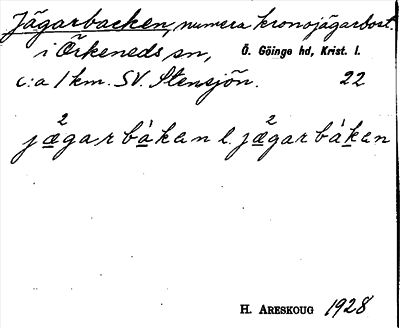 Jägarbacken, numera kronojägarbost.
i Örkeneds sn, Ö. Göinge hd, Krist. l.
c:a 1 km. SV. Stensjön. 22
2 2
jægarbàkan l. jægarbàkan
H. ARESKOUG 1928